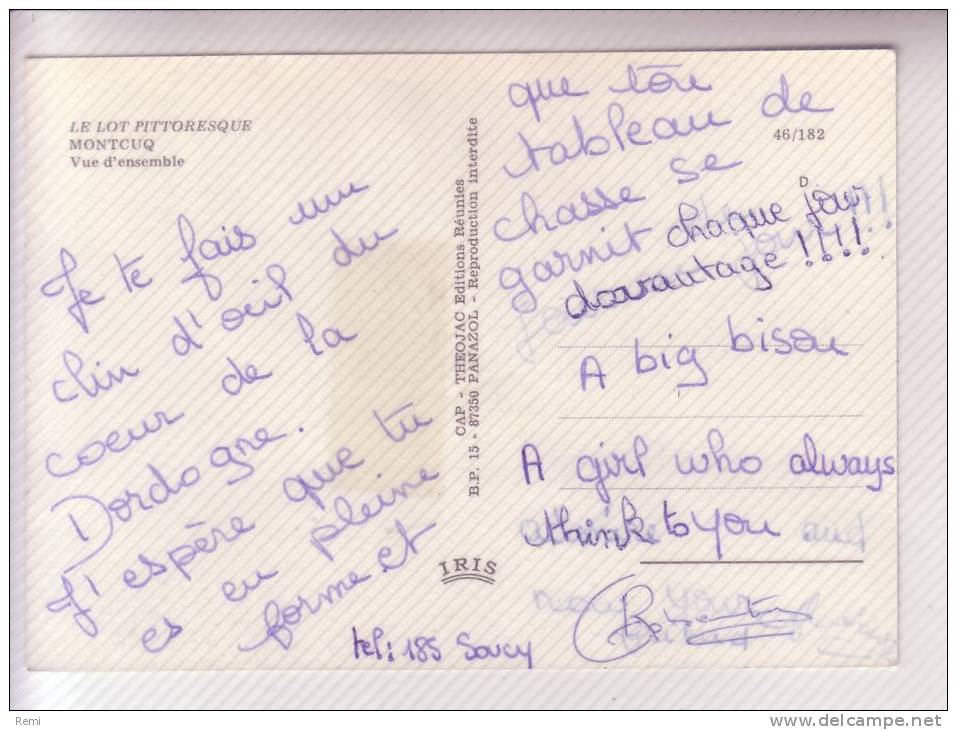 LE LOT PITTORESQUE
MONTCUQ
Vue d'ensemble
Je te fais un
clin d'oeil du
coeur de la
Dordogne.
J'espère que tu
es en pleine
forme et
que ton
tableau de
chasse se
garnit chaque jour
davantage !!!!
A big bisou
A girl who always
think to you
tel: 185 Soucy
CAP - THEOJAC Editions Réunies
B.P. 15 - 87350 PANAZOL - Reproduction interdite
IRIS
46/182
D
Remi
http://www.delcampe.net